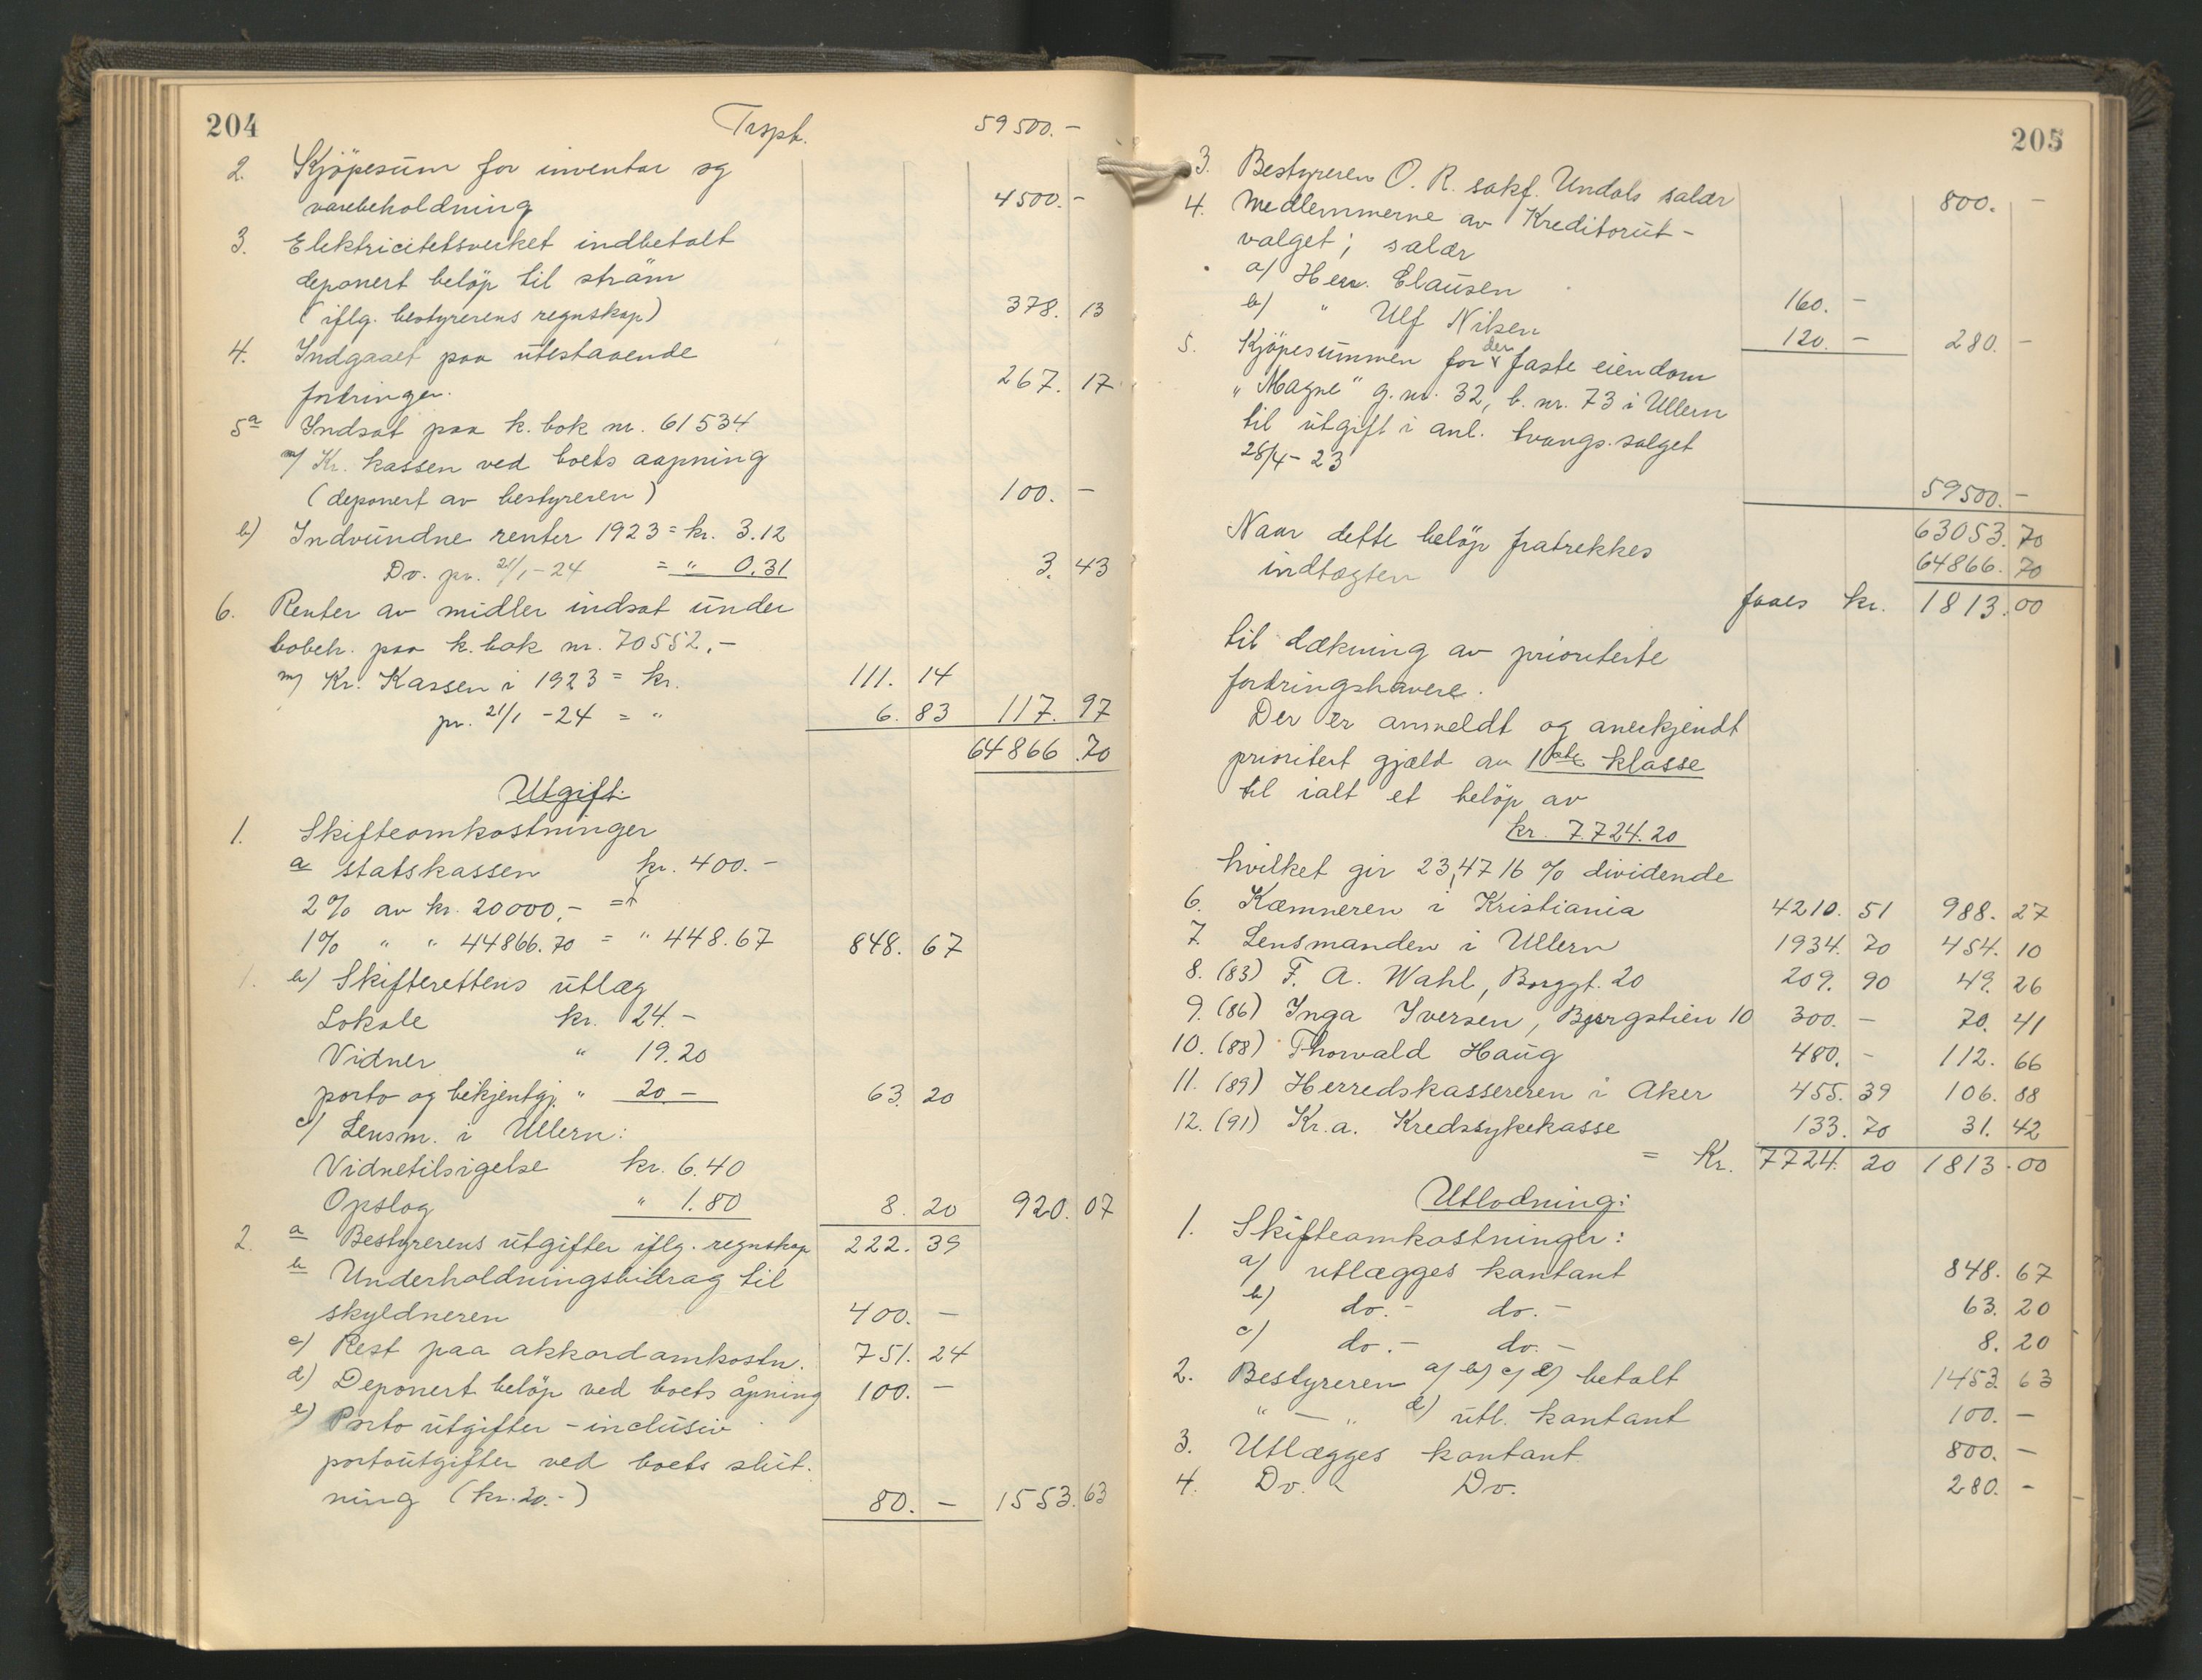 204
Trspt. 59500.-
2. Kjöpesum for inventar og
varebeholdning 4500.-
3. Elektricitetsverket indbetalt
deponert belöp til ström
(iflg. bestyrerens regnskap) 378. 13
4. Indgaaet paa utestaaende
fordringer. 267. 17
5a Indsat paa k. bok nr. 61534
m/ Kr. kassen ved boets aapning
(deponert av bestyreren) 100. -
b) Indvundne renter 1923 = kr. 3.12
Do. pr. 21/1-24 = " 0.31 3. 43
6. Renter av midler indsat under
bobeh. paa k. bok nr. 70552.-
m/ Kr. Kassen i 1923 = kr. 111. 14
pr. 21/1 -24 = " 6. 83 117. 97
64866.70
Utgift:
1. Skifteomkostninger
a statskassen kr. 400.-
2% av kr. 20000.- =
1% " " 44866.70 = " 448.67 848. 67
1. b) Skifterettens utlæg
Lokale kr. 24.-
Vidner " 19.20
porto og bekjentgj. " 20 - 63. 20
c) Lensm. i Ullern:
Vidnetilsigelse kr. 6.40
Opslag " 1.80 8. 20 920. 07
2. a Bestyrerens utgifter iflg. regnskap 222. 39
b Underholdningsbidrag til
skyldneren 400. -
c) Rest paa akkordomkostn. 751. 24
d) Deponert belöp ved boets åpning 100. -
e) Porto utgifter - inclusiv
portoutgifter ved boets slut-
ning (kr. 20.-) 80. - 1553.63
205
3. Bestyreren O. R. sakf. Undals salær 800. -
4. Medlemmerne av Kreditorut-
valget; salær
a/ Herr. Clausen 160. -
b/ " Ulf Nilsen 120. - 280. -
5. Kjöpesummen for den faste eiendom
"Magne" g. nr. 32, b. nr. 73 i Ullern
til utgift i anl. tvangs-salget
28/4-23 59500.-
63053.70
Naar dette belöp fratrekkes
indtægten 64866.70
faaes kr. 1813.00
til dækning av prioriterte
fordringshavere.
Der er anmeldt og anerkjendt
prioritert gjæld av 1ste klasse
til ialt et belöp av
kr. 7.724.20
hvilket gir 23,4716 % dividende
6. Kæmneren i Kristiania 4210. 51 988. 27
7. Lensmanden i Ullern 1934. 70 454. 10
8. (83) F. A. Wahl, Borggt. 20 209. 90 49. 26
9. (86) Inga Iversen, Bjergstien 10 300. - 70. 41
10. (88) Thorvald Haug 480. - 112. 66
11. (89) Herredskassereren i Aker 455. 39 106. 88
12. (91) Kr.a. Kredssykekasse 133. 70 31. 42
= Kr. 7724. 20 1813.00
Utlodning:
1. Skifteomkostninger:
a/ utlægges kontant 848. 67
b/ do.- do.- 63. 20
c/ do.- do.- 8. 20
2. Bestyreren a/ b/ c/ e/ betalt 1453. 63
" — " d/ utl. kontant 100. -
3. Utlægges kontant 800. -
4. Do. Do. 280. -